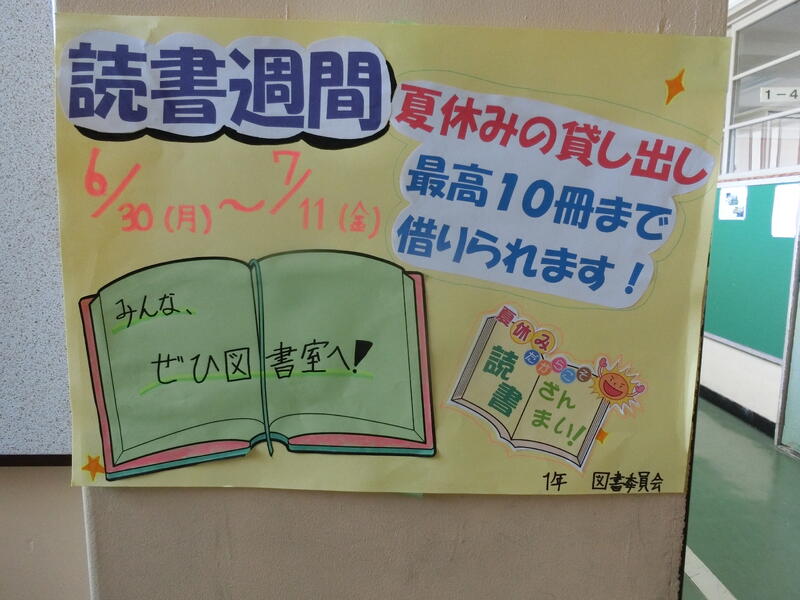 読書週間
6/30(月)〜7/11(金)
夏休みの貸し出し
最高10冊まで
借りられます!
みんな、
ぜひ図書室へ!
夏休み
だからこそ
読書
ざん
まい!
1年 図書委員会
1-4